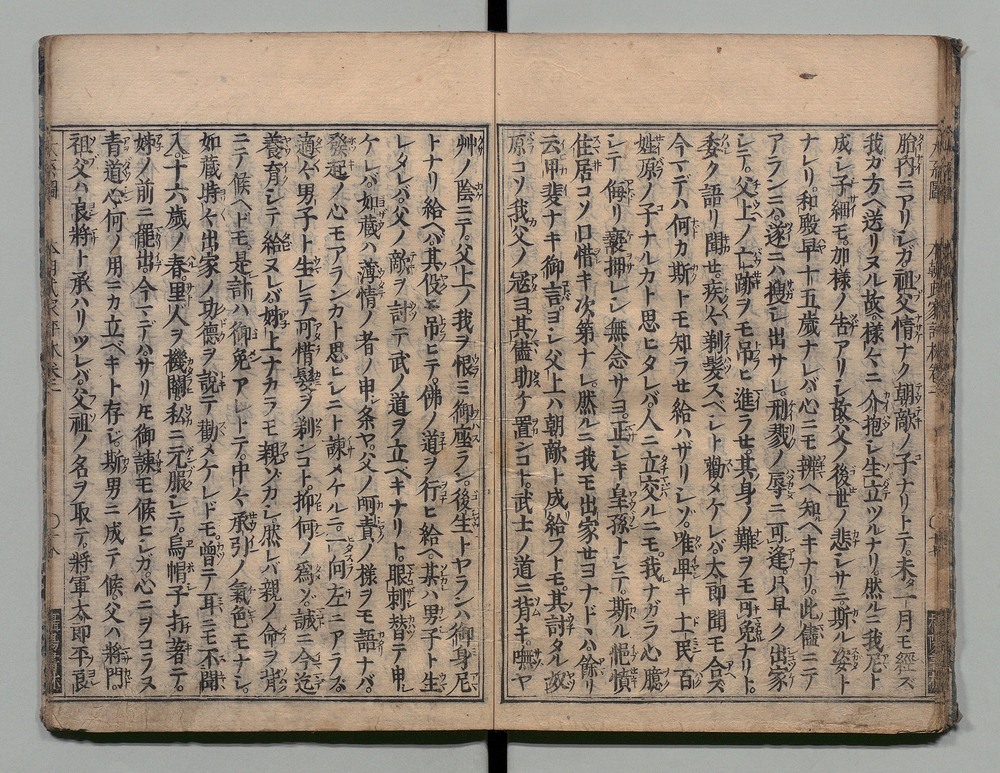 胎内ニアリシガ祖父情ナク朝敵ノ子ナリトテ未タ一月モ經ズ
我ガ方ヘ送リヌル故様々ニ介抱シ生立ツルナリ然ルニ我尼ト
成シ子細モ加様ノ告アリシ故父ノ後世ノ悲シサニ斯ル姿ト
ナレリ和殿早十五歳ナレバ心ニモ辨ヘ知ベキナリ此儘ニテ
アランニハ遂ニハ捜シ出サレ刑戮ノ辱ニ可逢只早ク出家
シテ父上ノ亡跡ヲモ吊ヒ進ラせ其身ノ難ヲモ可免ナリト
委ク語リ聞せ疾々剃髪スベシト勸メケレバ太郎聞モ合ズ
今マデハ何カ斯トモ知ラせ給ハザリシゾ唯卑キ土民百
姓原ノ子ナルカト思ヒタレバ人ニ立交ルニモ我ナガラ心臆
シテ侮リ蔑揶レシ無念サヨ正シキ皇孫トシテ斯ル悒憤
住居コソ口惜キ次第ナレ然ルニ我モ出家せヨナドヽハ餘リ
云甲斐ナキ御言ヨシ父上ハ朝敵ト成給フトモ其討タル奴
原コソ我父ノ冦ヨ其儘助ケ置ンコト武士ノ道ニ背キ嘸ヤ
艸ノ陰ニテ父上ノ我ヲ恨ミ御座ラン後生トヤランハ御身尼
トナリ給ヘバ其役ニ吊ヒテ佛ノ道ヲ行ヒ給ヘ某ハ男子ト生
レタレバ父ノ敵ヲ討テ武ノ道ヲ立ベキナリト眼刺替テ申
ケレバ如蔵ハ薄情ノ者ノ申条ヤ父ノ呵責ノ様ヲモ語ナバ
發起ノ心モアランカト思ヒシニト諫メケルニ一向左ニアラズ
適々男子ト生レテ可惜髪ヲ剃ンコト抑何ノ為ゾ誠ニ今迄
養育シテ給ヌレバ姉上ナカラモ親ゾカシ然レバ親ノ命ヲ背
ニテ候ヘドモ是計ハ御免アレトテ中々承引ノ氣色モナシ
如蔵時々出家ノ功德ヲ説テ勸メケレドモ曽テ耳ニモ不聞
入十六歳ノ春里人ヲ機關私ニ元服シテ烏帽子打著テ
姉ノ前ニ罷出今マデハサリ圧御諫モ候ヒシガ心ニヲコラヌ
青道心何ノ用ニカ立ベキト存ジ斯男ニ成テ候父ハ將門
祖父ハ良將ト承ハリツレバ父祖ノ名ヲ取テ將軍太郎平良